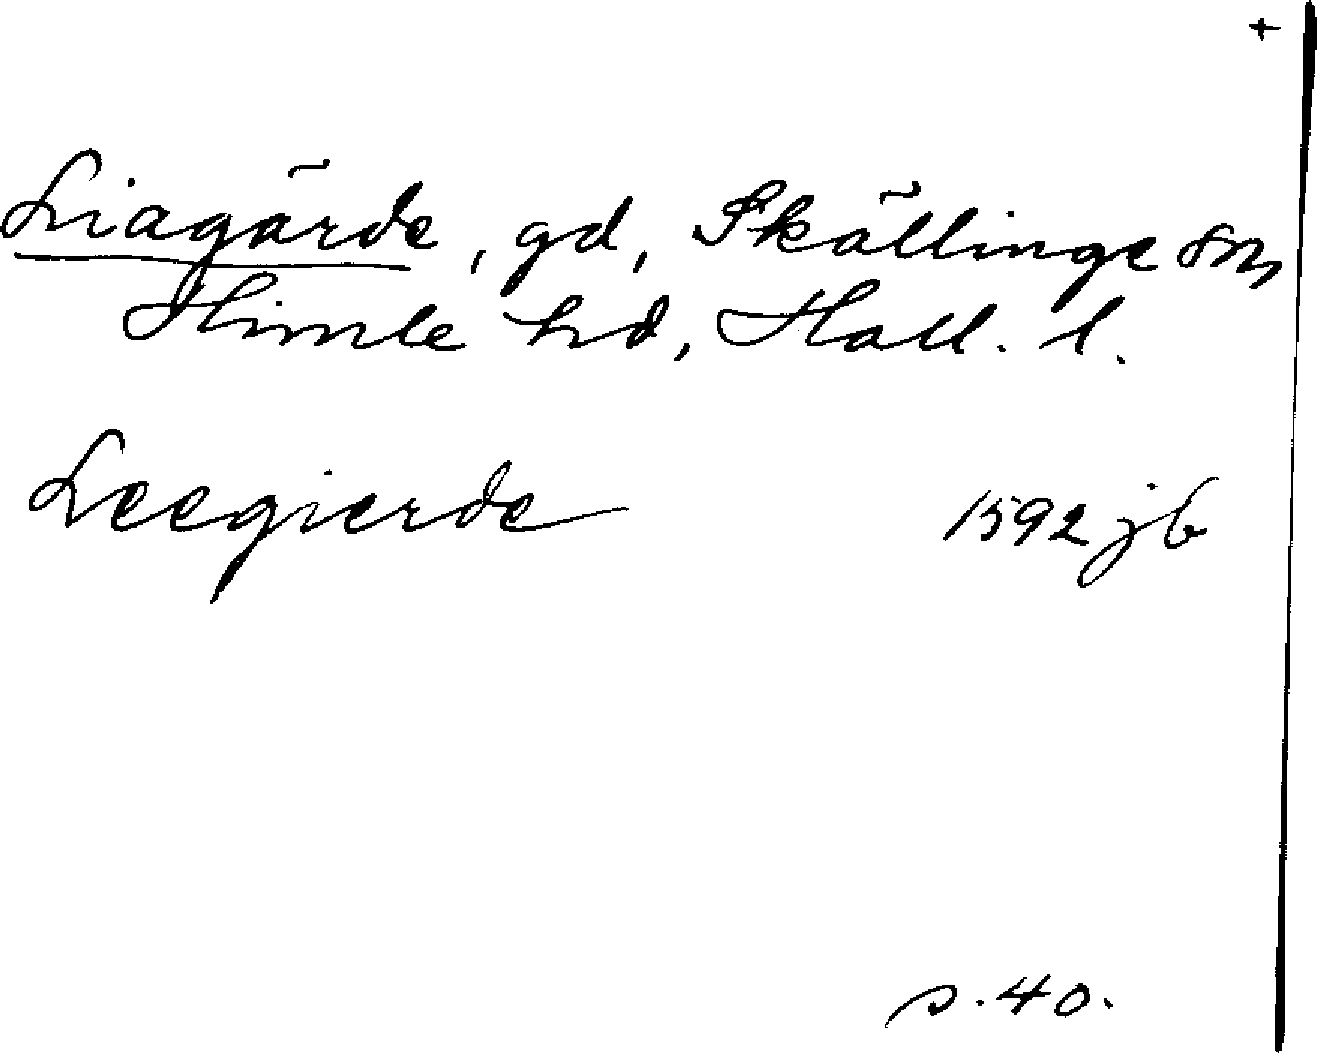 +
Liagärde, gd, Skällinge sn,
Himle hd, Hall. l.
Leegierde 1592 jb
s. 40.